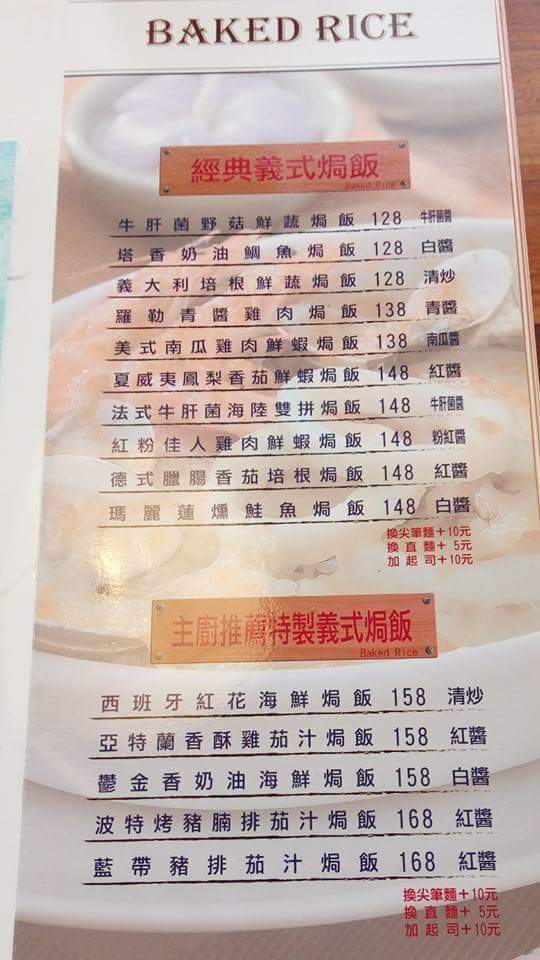 BAKED RICE
經典義式焗飯
Baked Rice
牛肝菌野菇鮮蔬焗飯 128 牛肝菌醬
塔香奶油鯛魚焗飯 128 白醬
義大利培根鮮蔬焗飯 128 清炒
羅勒青醬雞肉焗飯 138 青醬
美式南瓜雞肉鮮蝦焗飯 138 南瓜醬
夏威夷鳳梨香茄鮮蝦焗飯 148 紅醬
法式牛肝菌海陸雙拼焗飯 148 牛肝菌醬
紅粉佳人雞肉鮮蝦焗飯 148 粉紅醬
德式臘腸香茄培根焗飯 148 紅醬
瑪麗蓮燻鮭魚焗飯 148 白醬
換尖筆麵+10元
換直麵+ 5元
加起司+10元
主廚推薦特製義式焗飯
Baked Rice
西班牙紅花海鮮焗飯 158 清炒
亞特蘭香酥雞茄汁焗飯 158 紅醬
鬱金香奶油海鮮焗飯 158 白醬
波特烤豬腩排茄汁焗飯 168 紅醬
藍帶豬排茄汁焗飯 168 紅醬
換尖筆麵+10元
換直麵+ 5元
加起司+10元